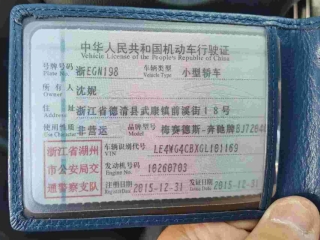 中华人民共和国机动车行驶证
Vehicle License of the People's Republic of China
号牌号码 Plate No. 浙EGN198 车辆类型 Vehicle Type 小型轿车
所有人 Owner 沈妮
住址 Address 浙江省德清县武康镇前溪街18号
使用性质 Use Character 非营运 品牌型号 Model 梅赛德斯-奔驰牌BJ7204
浙江省湖州 车辆识别代号 VIN LE4WG4CBXGL181169
市公安局交 发动机号码 Engine No. 10260703
通警察支队 注册日期 2015-12-31 发证日期 2015-12-31